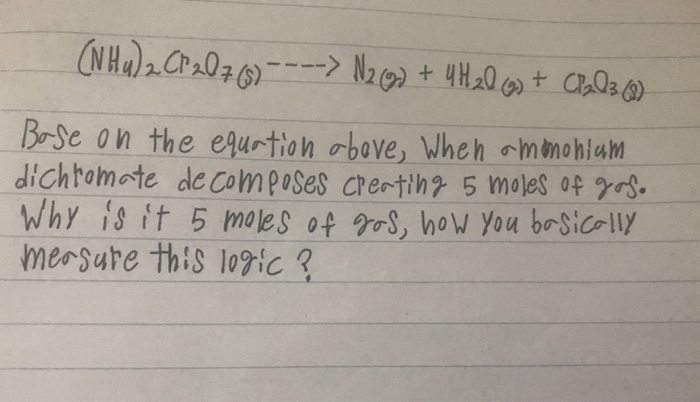 (NH4)2Cr2O7(s) ----> N2(g) + 4H2O(g) + Cr2O3(s)
Base on the equation above, When ammonium
dichromate decomposes creating 5 moles of gas.
Why is it 5 moles of gas, how you basically
measure this logic?